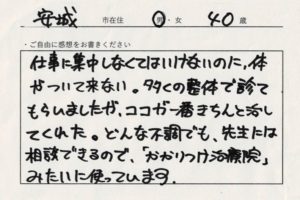 安城 市在住 男・女 40 歳
・ご自由に感想をお書きください
仕事に集中しなくてはいけないのに、体
がついて来ない。多くの整体で診て
もらいましたが、ココが一番きちんと治し
てくれた。どんな不調でも、先生には
相談できるので、「かかりつけ治療院」
みたいに使っています。